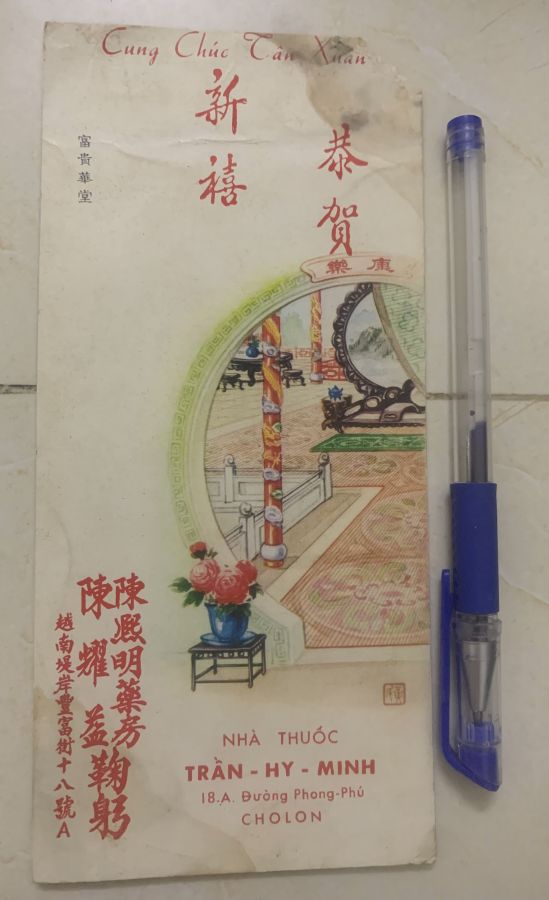 Cung Chúc Tân Xuân
恭賀
新禧
富貴華堂
康樂
陳熙明藥房
陳耀益鞠躬
越南堤岸豐富街十八號A
NHÀ THUỐC
TRẦN - HY - MINH
18.A. Đường Phong-Phú
CHOLON